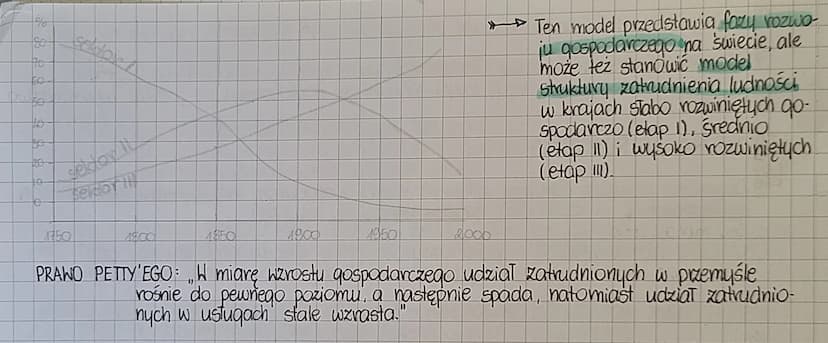 %
80
sektor I
70
60
50
40
30
20
10
0
sektor II
sektor III
1750
1800
1850
1900
1950
2000
Ten model przedstawia fazy rozwo-
ju gospodarczego na świecie, ale
może też stanowić model
struktury zatrudnienia ludności
w krajach słabo rozwiniętych go-
spodarczo (etap I), średnio
(etap II) i wysoko rozwiniętych
(etap III).
PRAWO PETTY'EGO: „W miarę wzrostu gospodarczego udział zatrudnionych w przemyśle
rośnie do pewnego poziomu, a następnie spada, natomiast udział zatrudnio-
nych w usługach stale wzrasta."